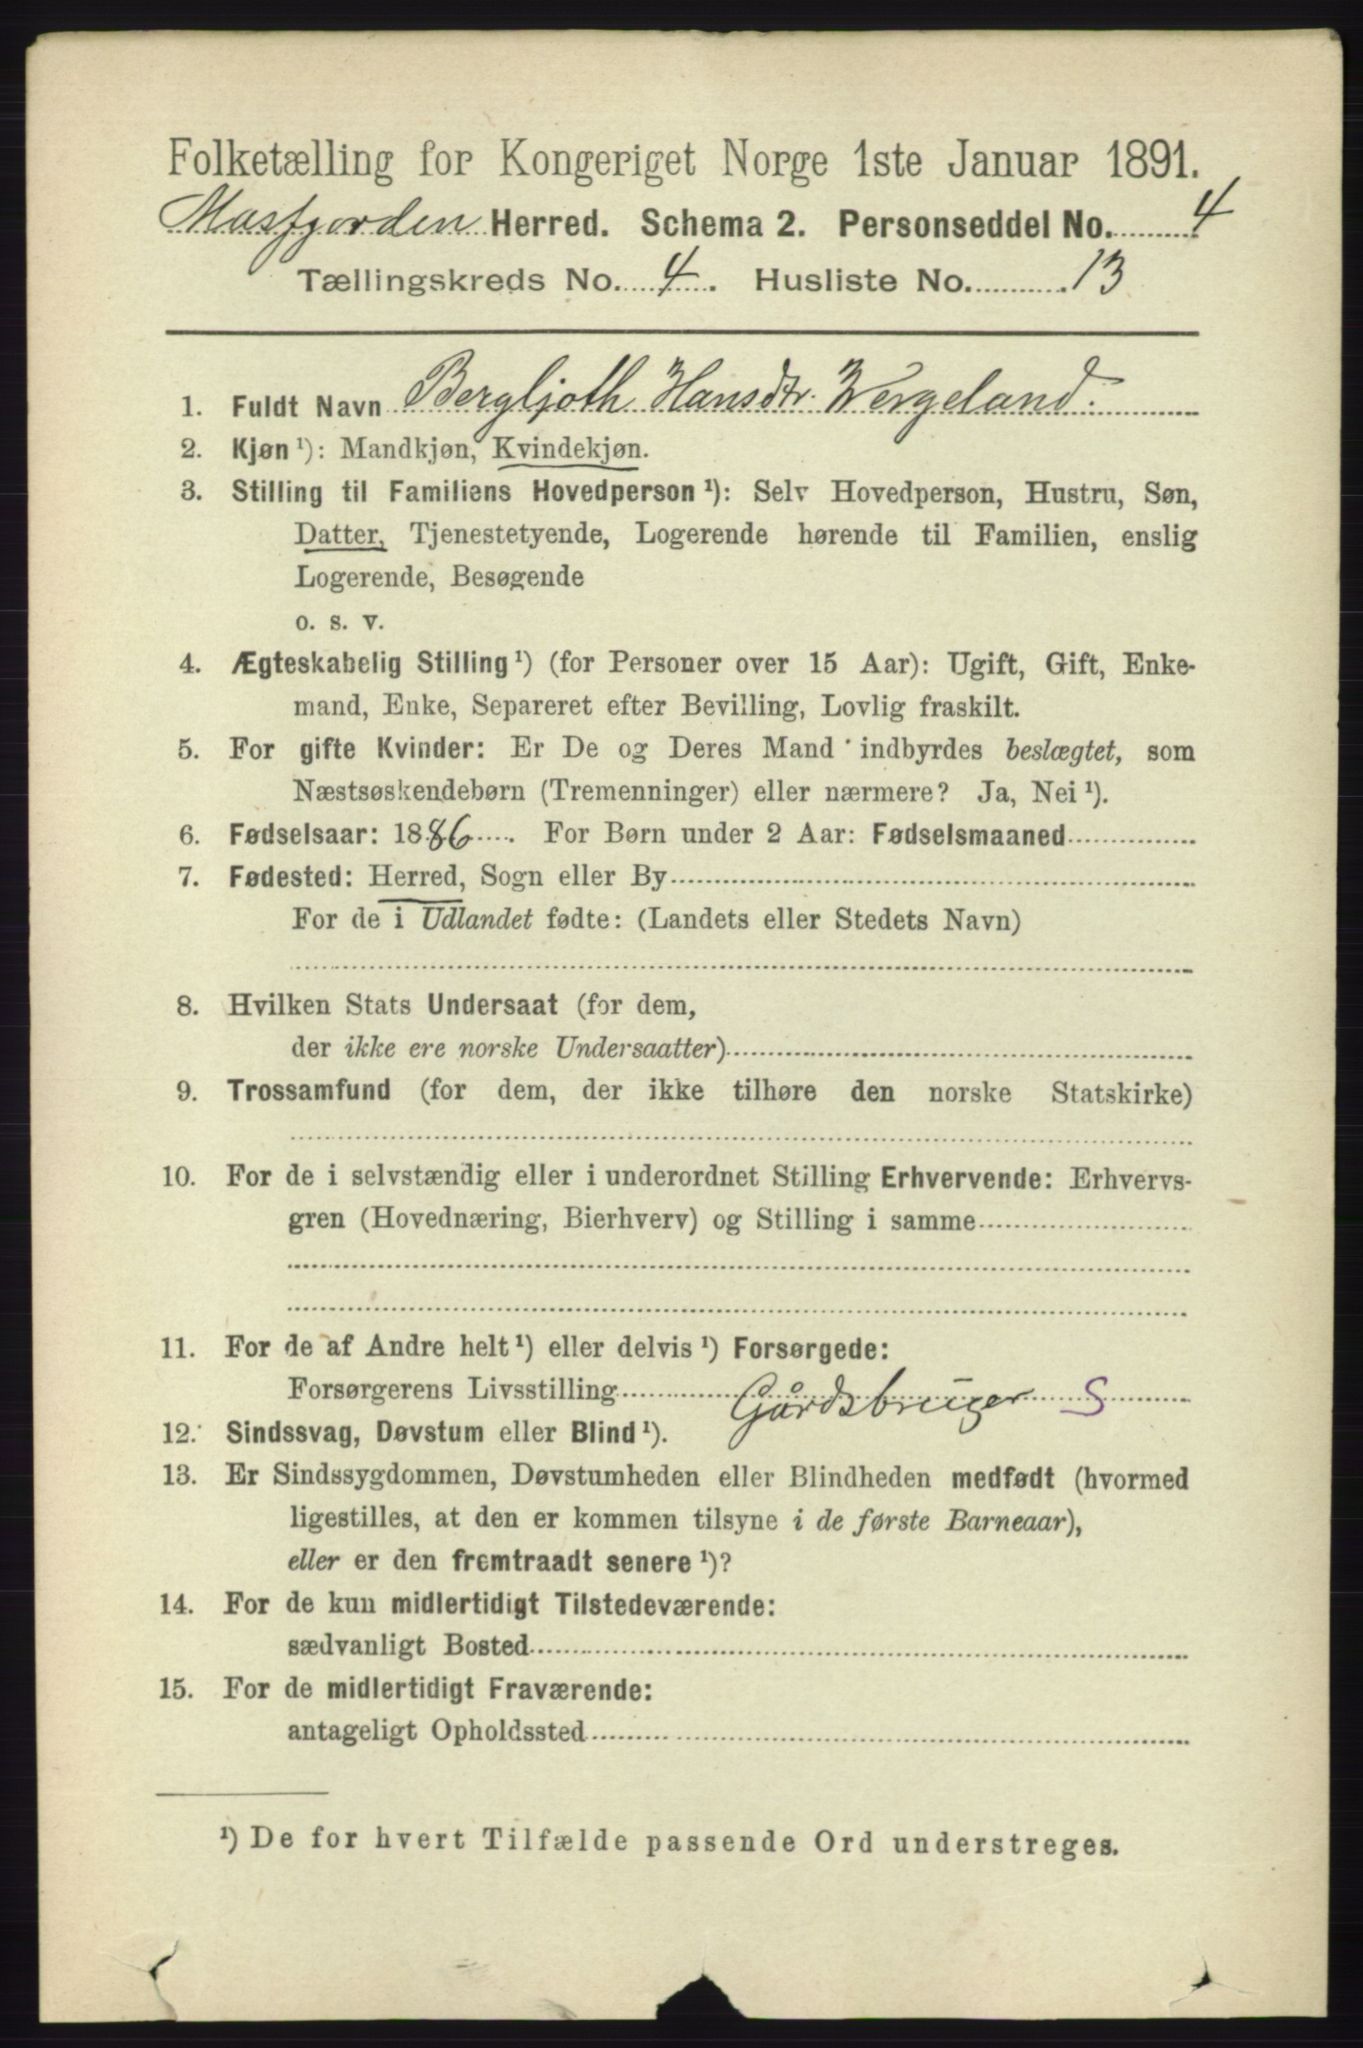 Folketælling for Kongeriget Norge 1ste Januar 1891.
Masfjorden Herred. Schema 2. Personseddel No. 4
Tællingskreds No. 4. Husliste No. 13
1. Fuldt Navn Bergljoth Hansdtr. Vergeland.
2. Kjøn ¹): Mandkjøn, Kvindekjøn.
3. Stilling til Familiens Hovedperson ¹): Selv Hovedperson, Hustru, Søn,
Datter, Tjenestetyende, Logerende hørende til Familien, enslig
Logerende, Besøgende
o. s. v.
4. Ægteskabelig Stilling ¹) (for Personer over 15 Aar): Ugift, Gift, Enke-
mand, Enke, Separeret efter Bevilling, Lovlig fraskilt.
5. For gifte Kvinder: Er De og Deres Mand indbyrdes beslægtet, som
Næstsøskendebørn (Tremenninger) eller nærmere? Ja, Nei ¹).
6. Fødselsaar: 1886. For Børn under 2 Aar: Fødselsmaaned
7. Fødested: Herred, Sogn eller By
For de i Udlandet fødte: (Landets eller Stedets Navn)
8. Hvilken Stats Undersaat (for dem,
der ikke ere norske Undersaatter)
9. Trossamfund (for dem, der ikke tilhøre den norske Statskirke)
10. For de i selvstændig eller i underordnet Stilling Erhvervende: Erhvervs-
gren (Hovednæring, Bierhverv) og Stilling i samme
11. For de af Andre helt ¹) eller delvis ¹) Forsørgede:
Forsørgerens Livsstilling Gårdsbruger S
12. Sindssvag, Døvstum eller Blind ¹).
13. Er Sindssygdommen, Døvstumheden eller Blindheden medfødt (hvormed
ligestilles, at den er kommen tilsyne i de første Barneaar),
eller er den fremtraadt senere ¹)?
14. For de kun midlertidigt Tilstedeværende:
sædvanligt Bosted
15. For de midlertidigt Fraværende:
antageligt Opholdssted
¹) De for hvert Tilfælde passende Ord understreges.